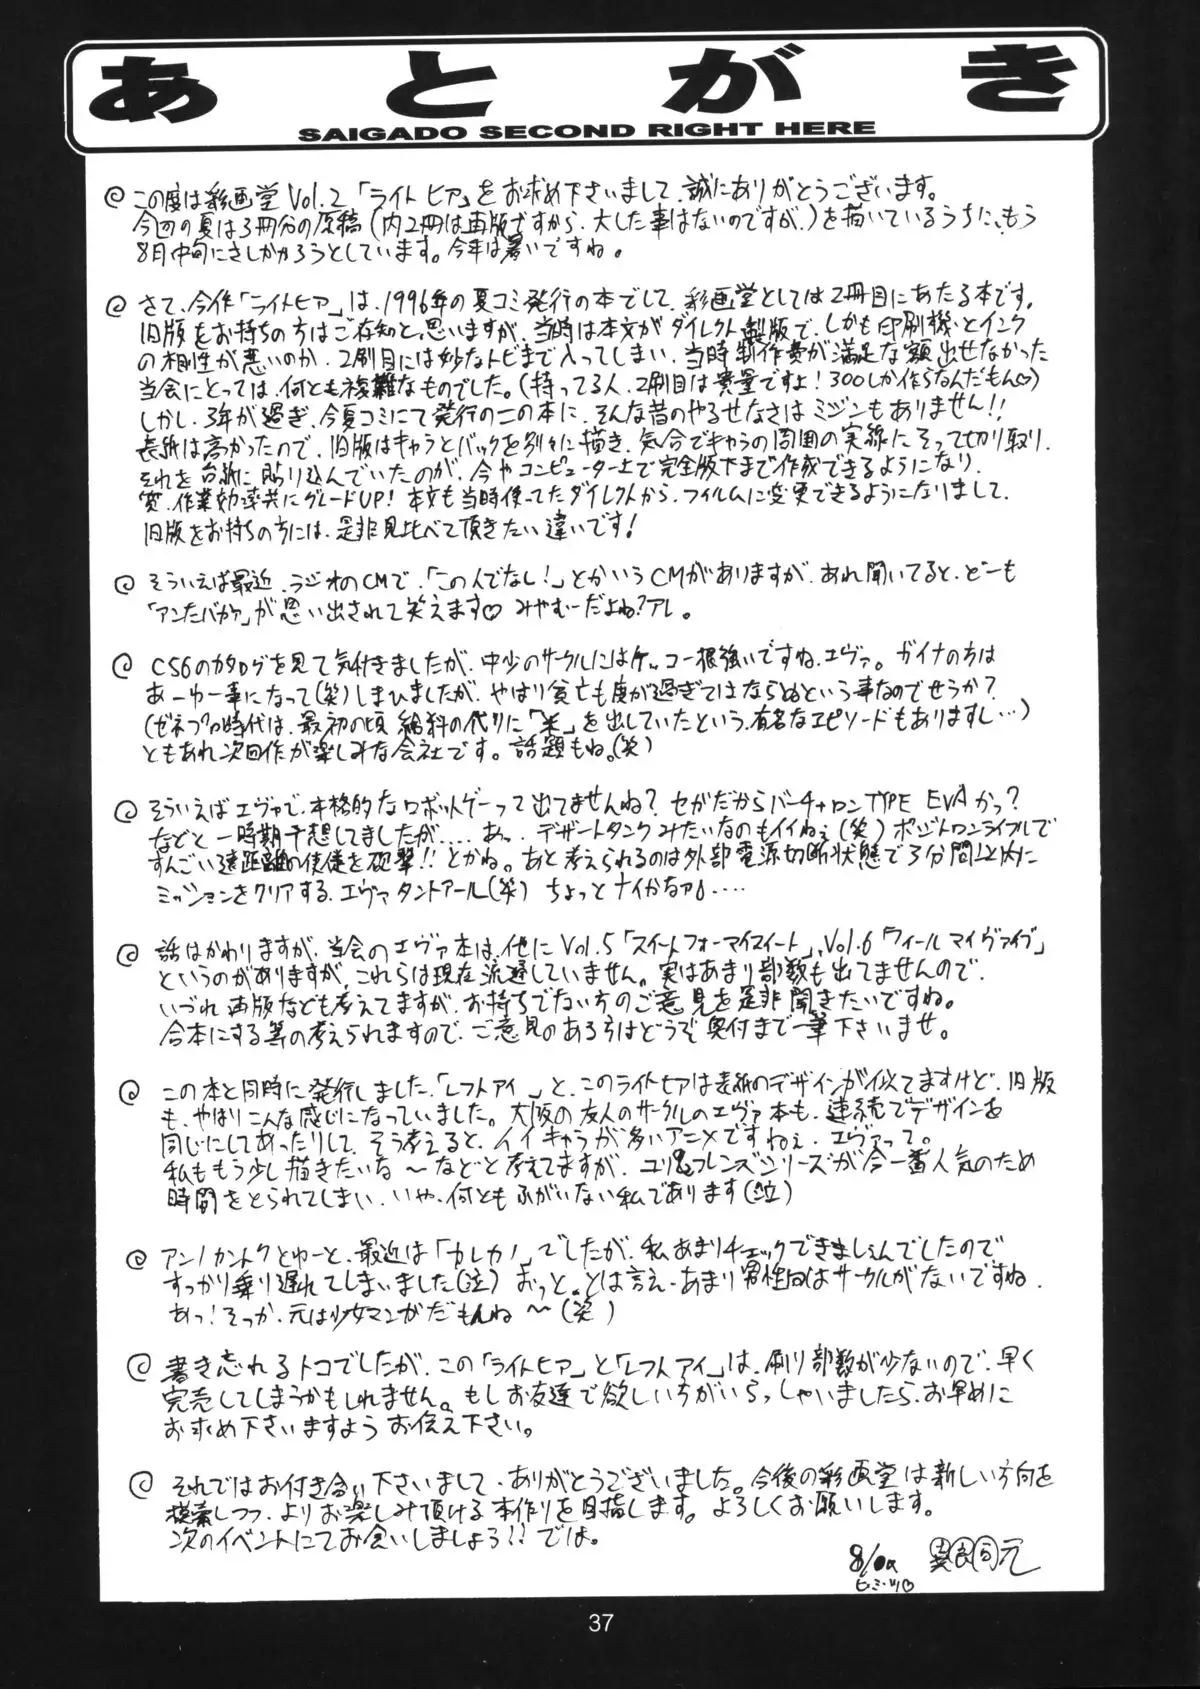 あとがき
SAIGADO SECOND RIGHT HERE
この度は彩画堂Vol.2「ライトヒア」をお求め下さいまして、誠にありがとうございます。
今回の夏は3冊分の原稿(内2冊は再版ですから、大した事はないのですが、)を描いているうちに、もう
8月中旬にさしかかろうとしています。今年は暑いですね。
さて、今作「ライトヒア」は、1996年の夏コミ発行の本でして、彩画堂としては2冊目にあたる本です。
旧版をお持ちの方はご存知と思いますが、当時は本文がダイレクト製版で、しかも印刷機とインク
の相性が悪いのか、2刷目には妙なトビまで入ってしまい、当時制作費が満足な額出せなかった
当会にとっては、何とも複雑なものでした。(持ってる人、2刷目は貴重ですよ!300しか作らなんだもん♡)
しかし、3年が過ぎ、今夏コミにて発行のこの本に、そんな昔のやるせなさはミジンもありません!!
表紙は高かったので、旧版はキャラとバックを別々に描き、気合でキャラの周囲の実線にそって切り取り、
それを台紙に貼り込んでいたのが、今やコンピューター上で完全版下まで作成できるようになり、
質、作業効率共にグレードUP!本文も当時使ってたダイレクトから、フィルムに変更できるようになりまして、
旧版をお持ちの方には、是非見比べて頂きたい違いです!
そういえば最近、ラジオのCMで、「この人でなし!」とかいうCMがありますが、あれ聞いてると、どーも
「アンたバカァ」が思い出されて笑えます♡ みやむーだよね?アレ。
C56のカタログを見て気付きましたが、中少のサークルにはケッコー根強いですね、エヴァ。ガイナの方は
あーゆー事になって(笑)しまひましたが、やはり貧亡も度が過ぎてはならぬという事なのでせうか?
(ゼネプロ時代は、最初の頃給料の代りに「米」を出していたという、有名なエピソードもありますし…)
ともあれ次回作が楽しみな会社です。話題もね。(笑)
そういえばエヴァで、本格的なロボットゲーって出てませんね?セガだからバーチャロンTYPE EVAかっ?
などと一時期予想してましたが……あっ、デザートタンクみたいなのもイイねぇ(笑)ポジトロンライフルで
すんごい遠距離の使徒を砲撃!!とかね。あと考えられるのは外部電源切断状態で3分間以内に
ミッションをクリアする、エヴァタントアール(笑) ちょっとナイかなァ……
話はかわりますが、当会のエヴァ本は、他にVol.5「スイートフォーマイスイート」、Vol.6「フィールマイヴァイブ」
というのがありますが、これらは現在流通していません。実はあまり部数も出てませんので、
いづれ再版なども考えてますが、お持ちでない方のご意見を是非聞きたいですね。
合本にする等の考えられますので、ご意見のある方はどうぞ奥付まで一筆下さいませ。
この本と同時に発行しました、「レフトアイ」と、このライトヒアは表紙のデザインが似てますけど、旧版
も、やはりこんな感じになっていました。大阪の友人のサークルのエヴァ本も、連続でデザインを
同じにしてあったりして、そう考えると、イイキャラが多いアニメですねぇ、エヴァって。
私ももう少し描きたいな〜などと考えてますが、ユリ&フレンズシリーズが今一番人気のため
時間をとられてしまい、いや、何ともふがいない私であります(泣)
アンノカントクとゆーと、最近は「カレカノ」でしたが、私あまりチェックできましぇんでしたので
すっかり乗り遅れてしまいました(泣) おっと、とは言え、あまり男性向はサークルがないですね、
あっ!そっか、元は少女マンガだもんね〜(笑)
書き忘れるトコでしたが、この「ライトヒア」と「レフトアイ」は、刷り部数が少ないので、早く
完売してしまうかもしれません。もしお友達で欲しい方がいらっしゃいましたら、お早めに
お求め下さいますようお伝え下さい。
それではお付き合い下さいまして、ありがとうございました。今後の彩画堂は新しい方向を
模索しつつ、よりお楽しみ頂ける本作りを目指します。よろしくお願いします。
次のイベントにてお会いしましょう!?では。
37